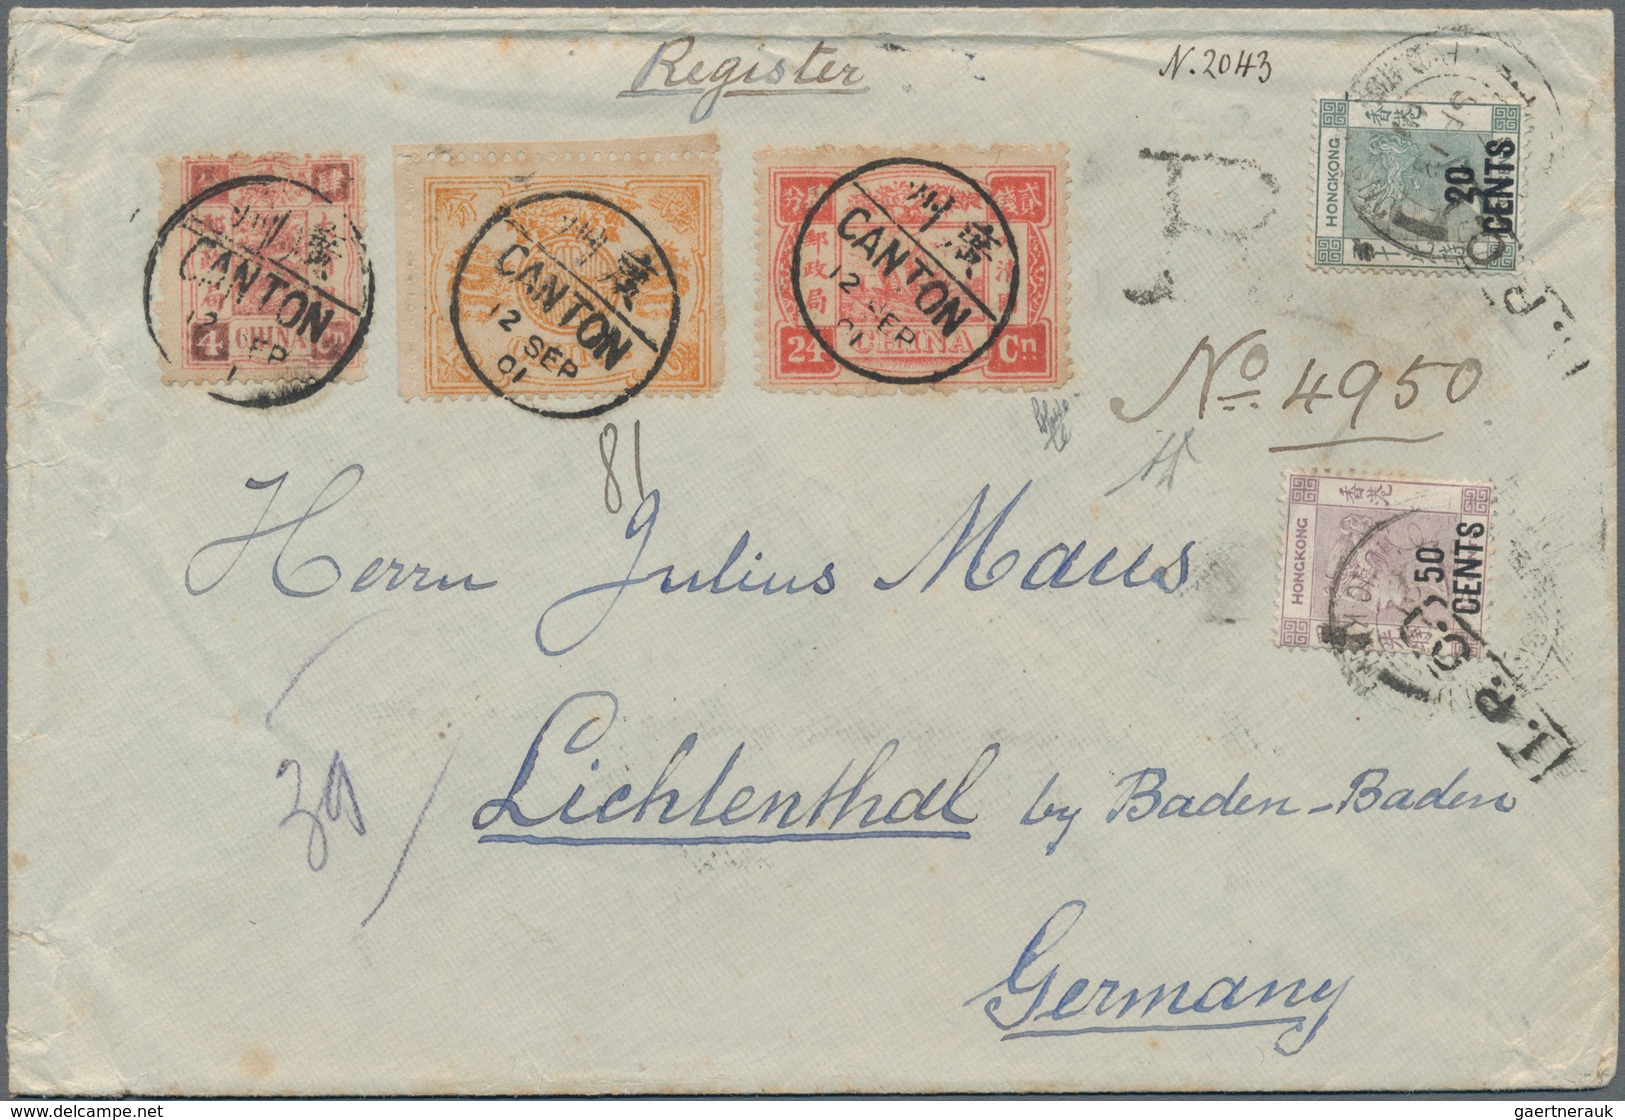 Register
N. 2043
廣州
CANTON
12 SEP
4
CHINA
廣州
CANTON
12 SEP
01
廣州
CANTON
12 SEP
01
郵政局
24
CHINA
Cn
R
香港
HONGKONG
20
CENTS
I.P.O.
No 4950
81
香港
HONGKONG
50
CENTS
I.P.O.
Herrn Julius Maus
39
Lichtenthal by Baden-Baden
Germany
gaertnerauk @ delcampe.net